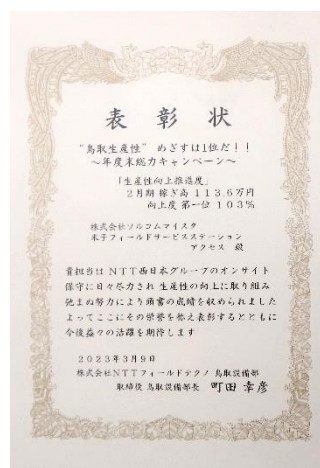 表彰状
“鳥取生産性” めざすは1位だ!!
~年度末総力キャンペーン~
「生産性向上推進度」
2月期 稼ぎ高 113.6万円
向上度 第一位 103%
株式会社ソルコムマイスタ
米子フィールドサービスステーション
アクセス 殿
貴担当は NTT西日本グループのオンサイト
保守に日々尽力され 生産性の向上に取り組み
弛まぬ努力により頭書の成績を収められました
よってここにその栄誉を称え表彰するとともに
今後益々の活躍を期待します
2023年3月9日
株式会社NTTフィールドテクノ 鳥取設備部
取締役 鳥取設備部長 町田 幸彦